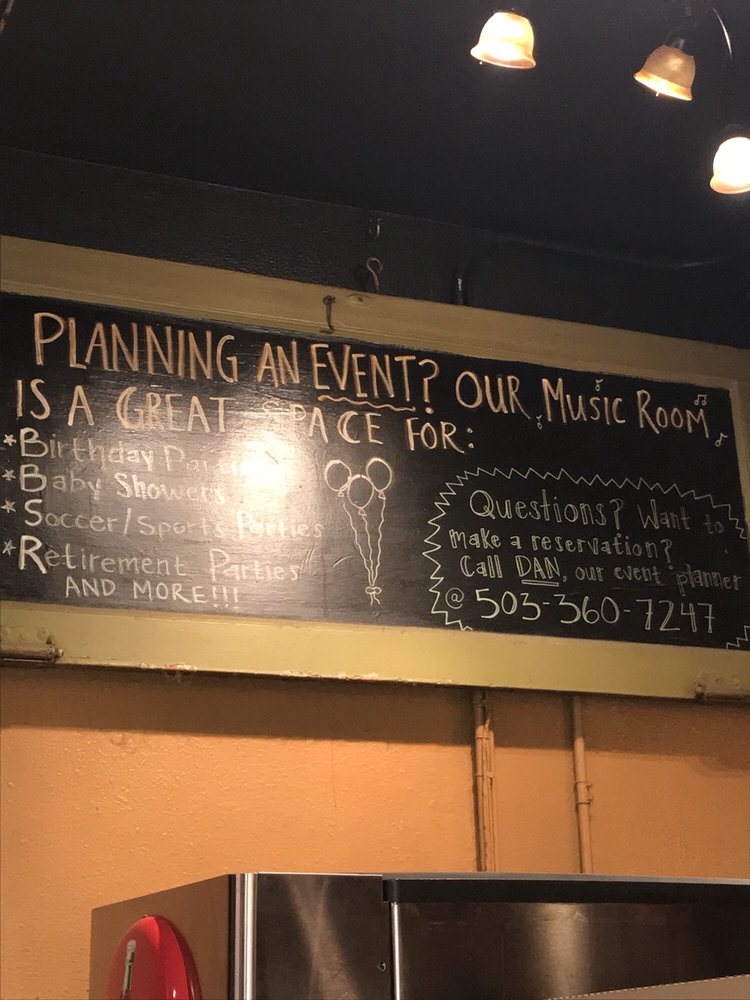 PLANNING AN EVENT? OUR MUSIC ROOM
IS A GREAT SPACE FOR:
*Birthday Parties
*Baby Showers
*Soccer/Sports Parties
*Retirement Parties
AND MORE!!!
Questions? Want to
make a reservation?
Call DAN, our event planner
@ 503-360-7247